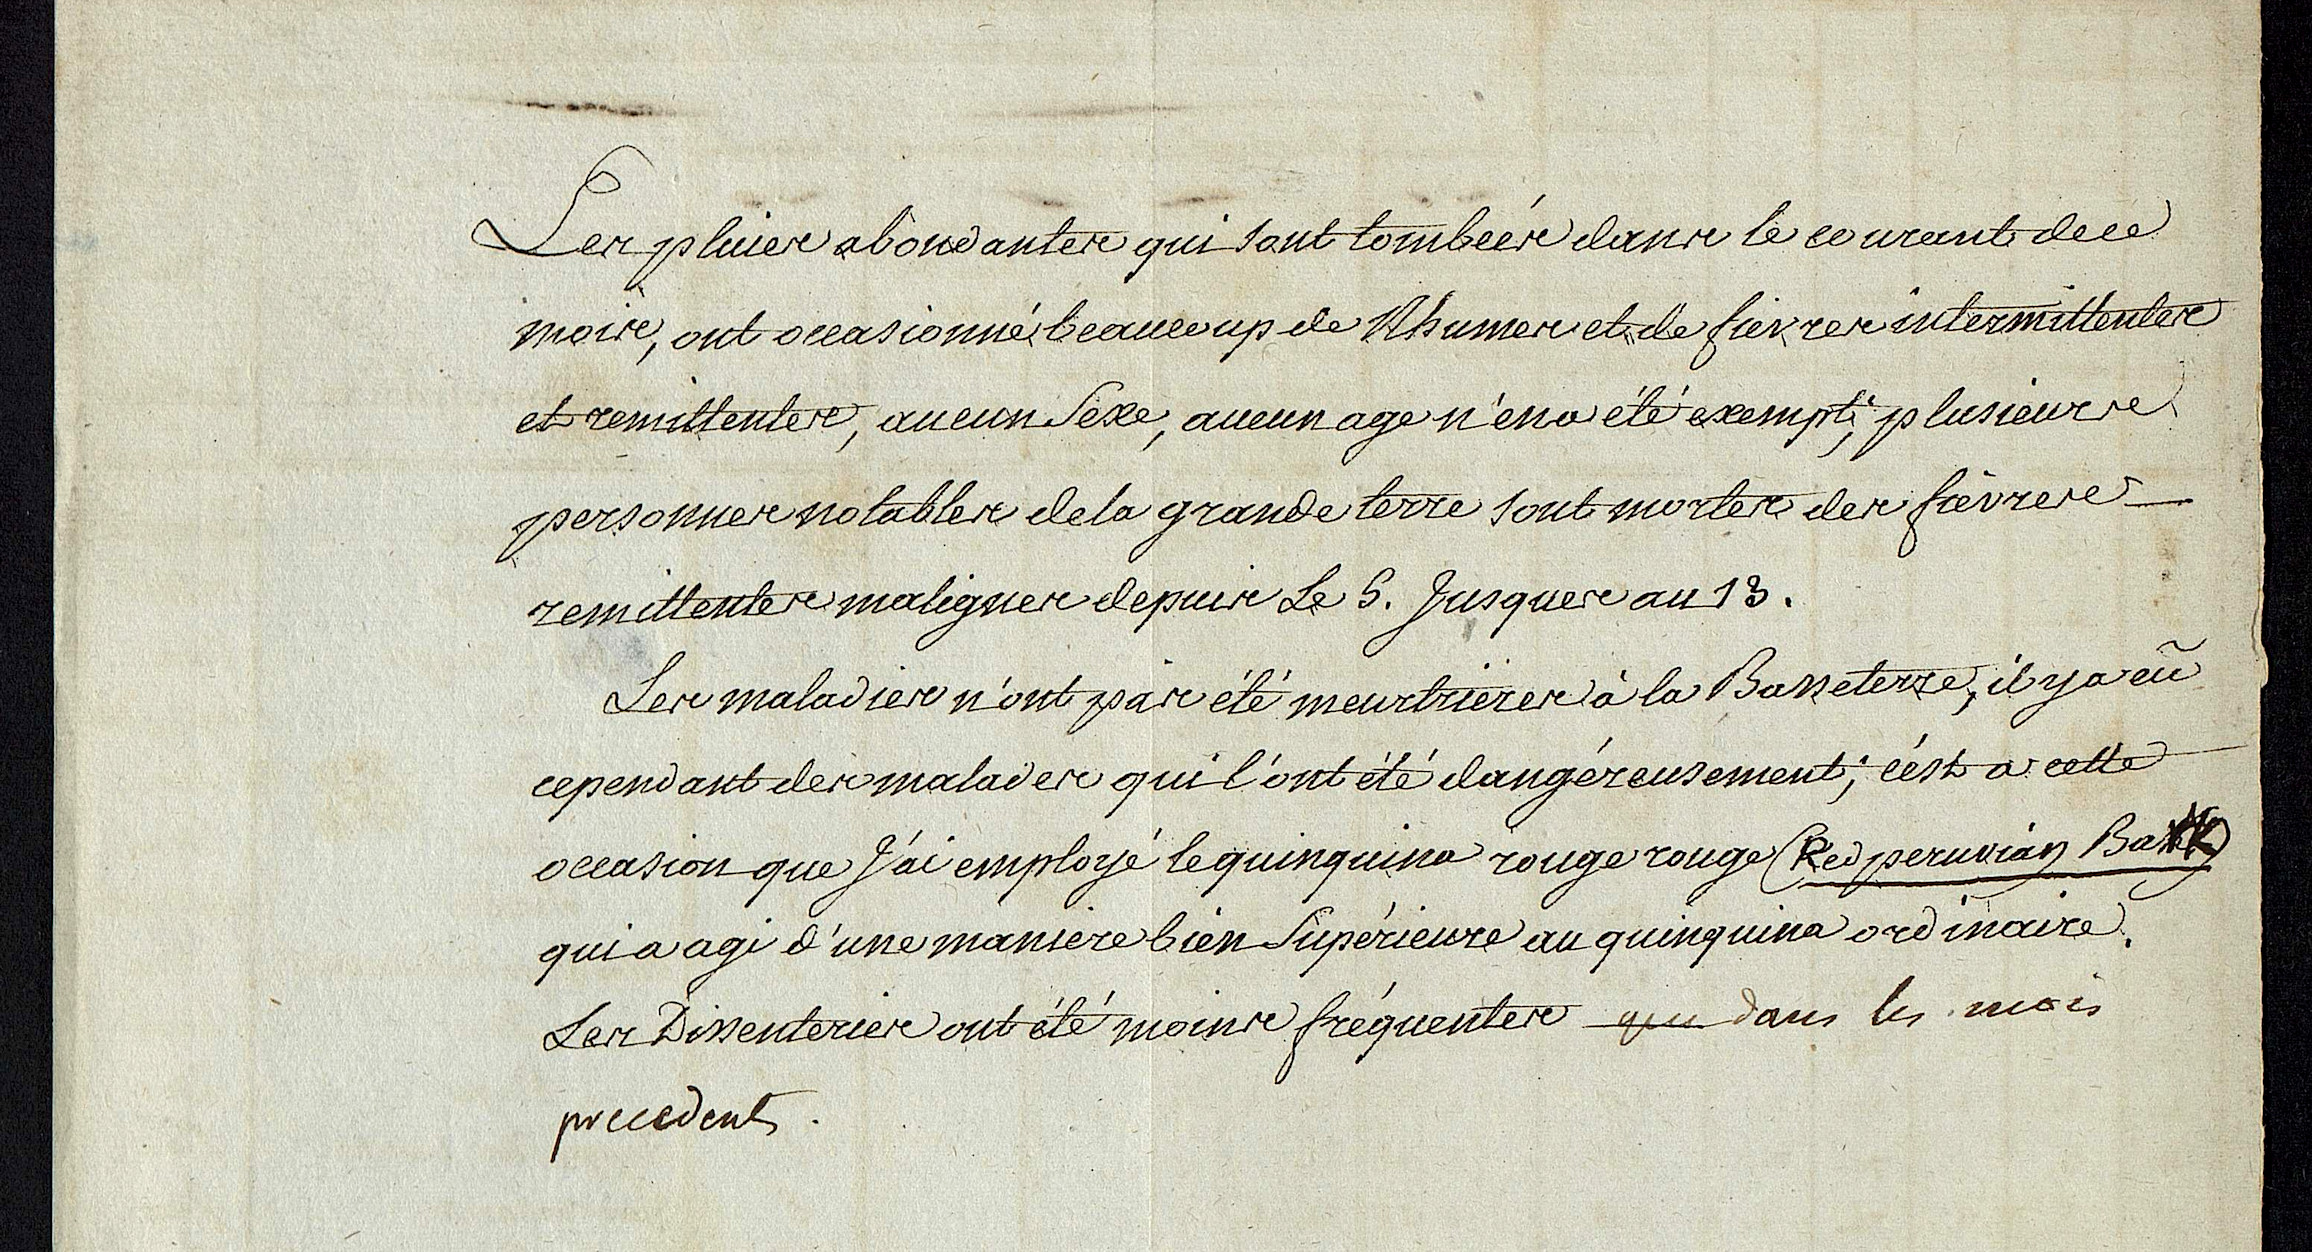 Les pluies abondantes qui sont tombeés dans le courant de ce
mois, ont occasionné beaucoup de Rhumes et de fievres intermittentes
et remittentes, aucun Sexe, aucun age n'en a été exempt; plusieurs
personnes notables de la grande terre sont mortes des fièvres
remittentes malignes depuis Le 5. Jusques au 13.
Les maladies n'ont pas été meurtrières à la Basseterre, il y a eû
cependant des malades qui l'ont été dangéreusement; c'ést a cette
occasion que J'ai employé le quinquina rouge rouge (Red peruvian Bark)
qui a agi d'une maniere bien Supérieure au quinquina ordinaire.
Les Dissenteries ont été moins fréquentes que dans les mois
precedents.